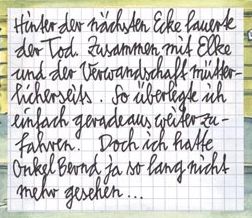 Hinter der nächsten Ecke lauerte
der Tod. Zusammen mit Elke
und der Verwandschaft mütter-
licherseits. So überlegte ich
einfach geradeaus weiter zu-
fahren. Doch ich hatte
Onkel Bernd ja so lang nicht
mehr gesehen...